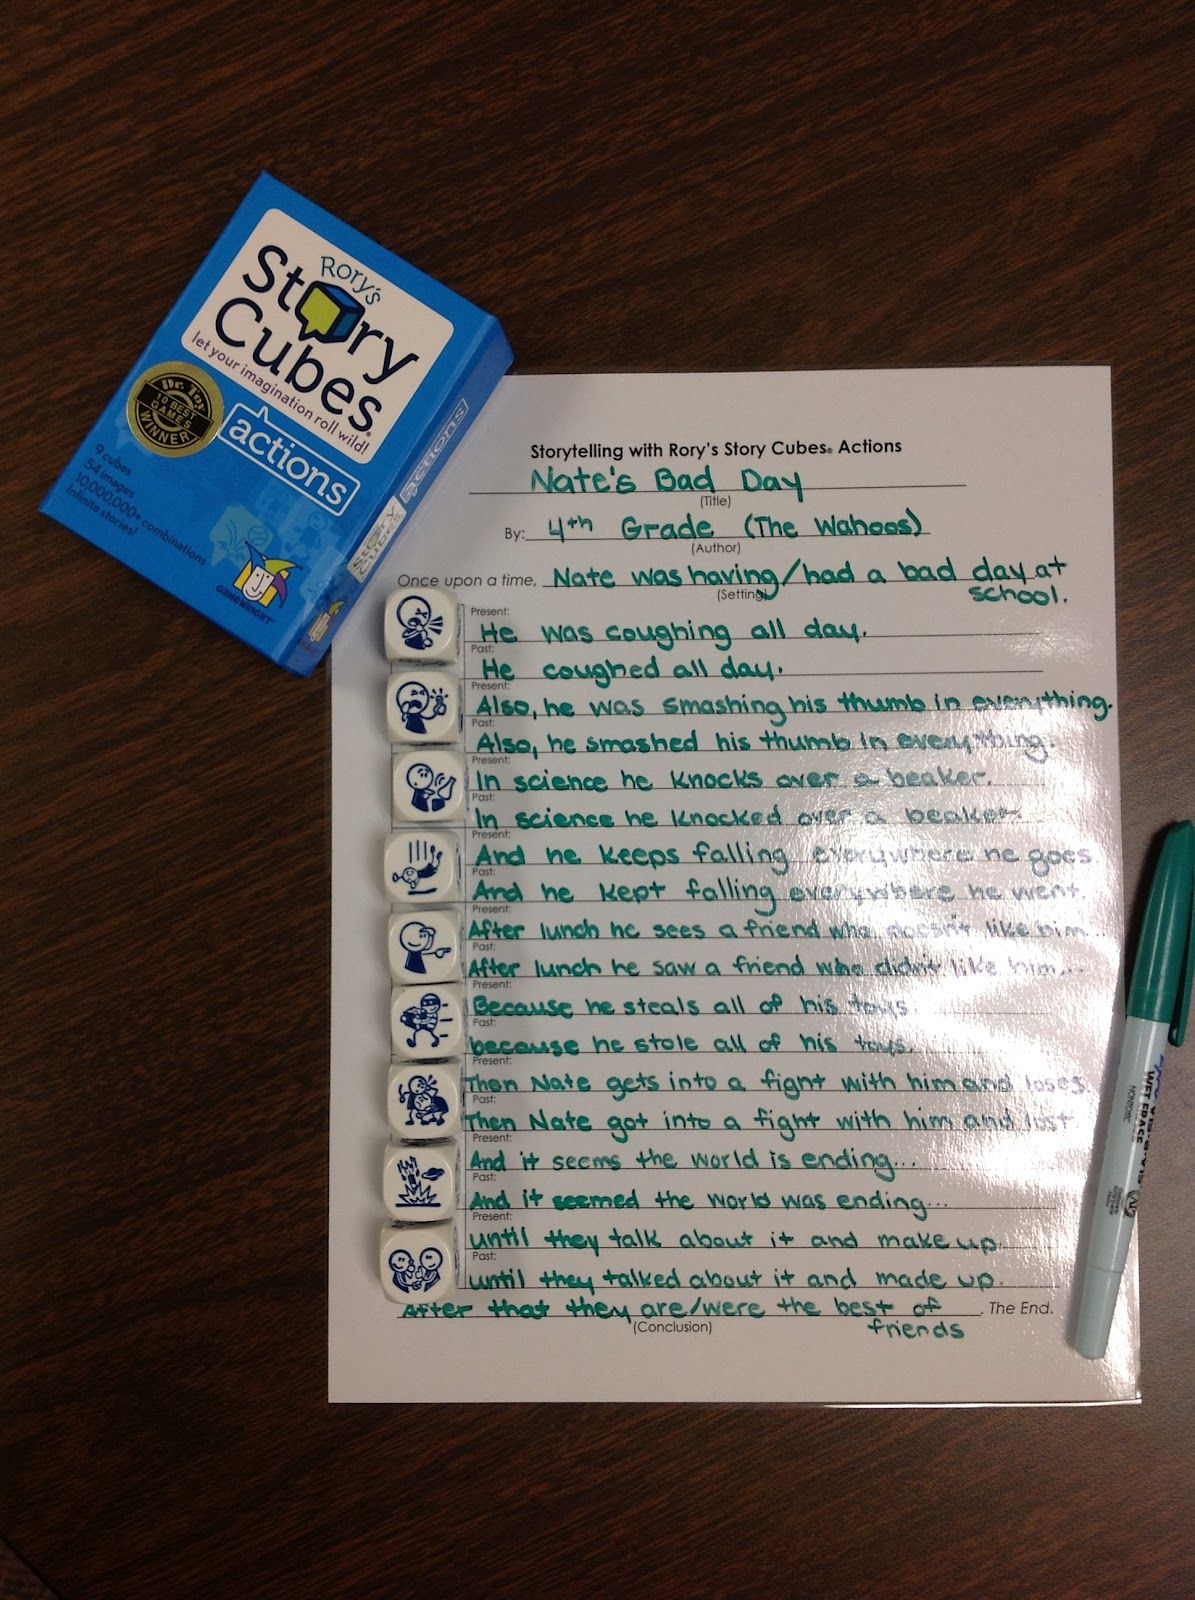 Rory's
Story
Cubes®
let your imagination roll wild!
Dr. Toy
10 BEST
GAMES
WINNER
actions
9 cubes
54 images
10,000,000+ combinations
Infinite stories!
GAMEWRIGHT
story
cubes
actions
Storytelling with Rory's Story Cubes® Actions
Nate's Bad Day
(Title)
By: 4th Grade (The Wahoos)
(Author)
Once upon a time, Nate was having/had a bad day at
school.
(Setting)
Present:
He was coughing all day.
Past:
He coughed all day.
Present:
Also, he was smashing his thumb in everything.
Past:
Also, he smashed his thumb in everything.
Present:
In science he knocks over a beaker.
Past:
In science he knocked over a beaker.
Present:
And he keeps falling everywhere he goes.
Past:
And he kept falling everywhere he went.
Present:
After lunch he sees a friend who doesn't like him...
Past:
After lunch he saw a friend who didn't like him...
Present:
Because he steals all of his toys.
Past:
because he stole all of his toys.
Present:
Then Nate gets into a fight with him and loses.
Past:
Then Nate got into a fight with him and lost.
Present:
And it seems the world is ending...
Past:
And it seemed the world was ending...
Present:
until they talk about it and make up.
Past:
until they talked about it and made up.
After that they are/were the best of
friends
. The End.
(Conclusion)
WET ERASE